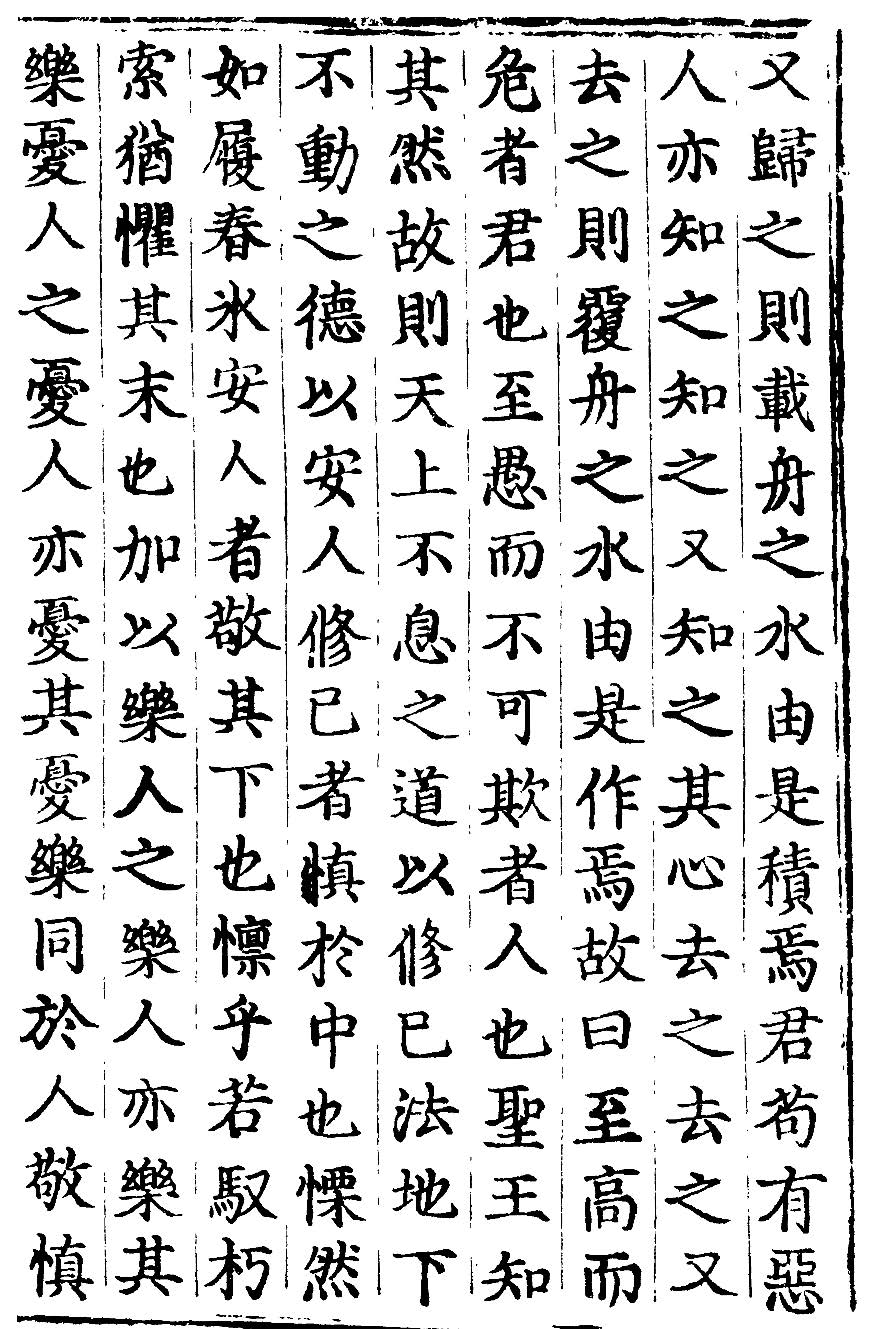 又歸之則載舟之水由是積焉君苟有惡
人亦知之知之又知之其心去之去之又
去之則覆舟之水由是作焉故曰至高而
危者君也至愚而不可欺者人也聖王知
其然故則天上不息之道以修已法地下
不動之德以安人修已者慎於中也慄然
如履春氷安人者敬其下也懍乎若馭朽
索猶懼其末也加以樂人之樂人亦樂其
樂憂人之憂人亦憂其憂樂同於人敬慎